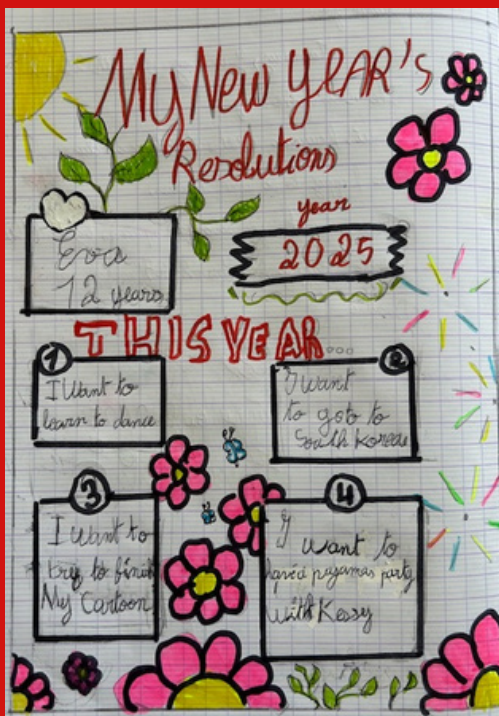 My New YEAR's
Resolutions
year
2025
Eva
12 years
THIS YEAR...
1
I Want to
learn to dance
2
I Want
to goto to
South Koreae
3
I Want to
try to finish
My Cartoon
4
I want to
have a pajamas party
with Kessy